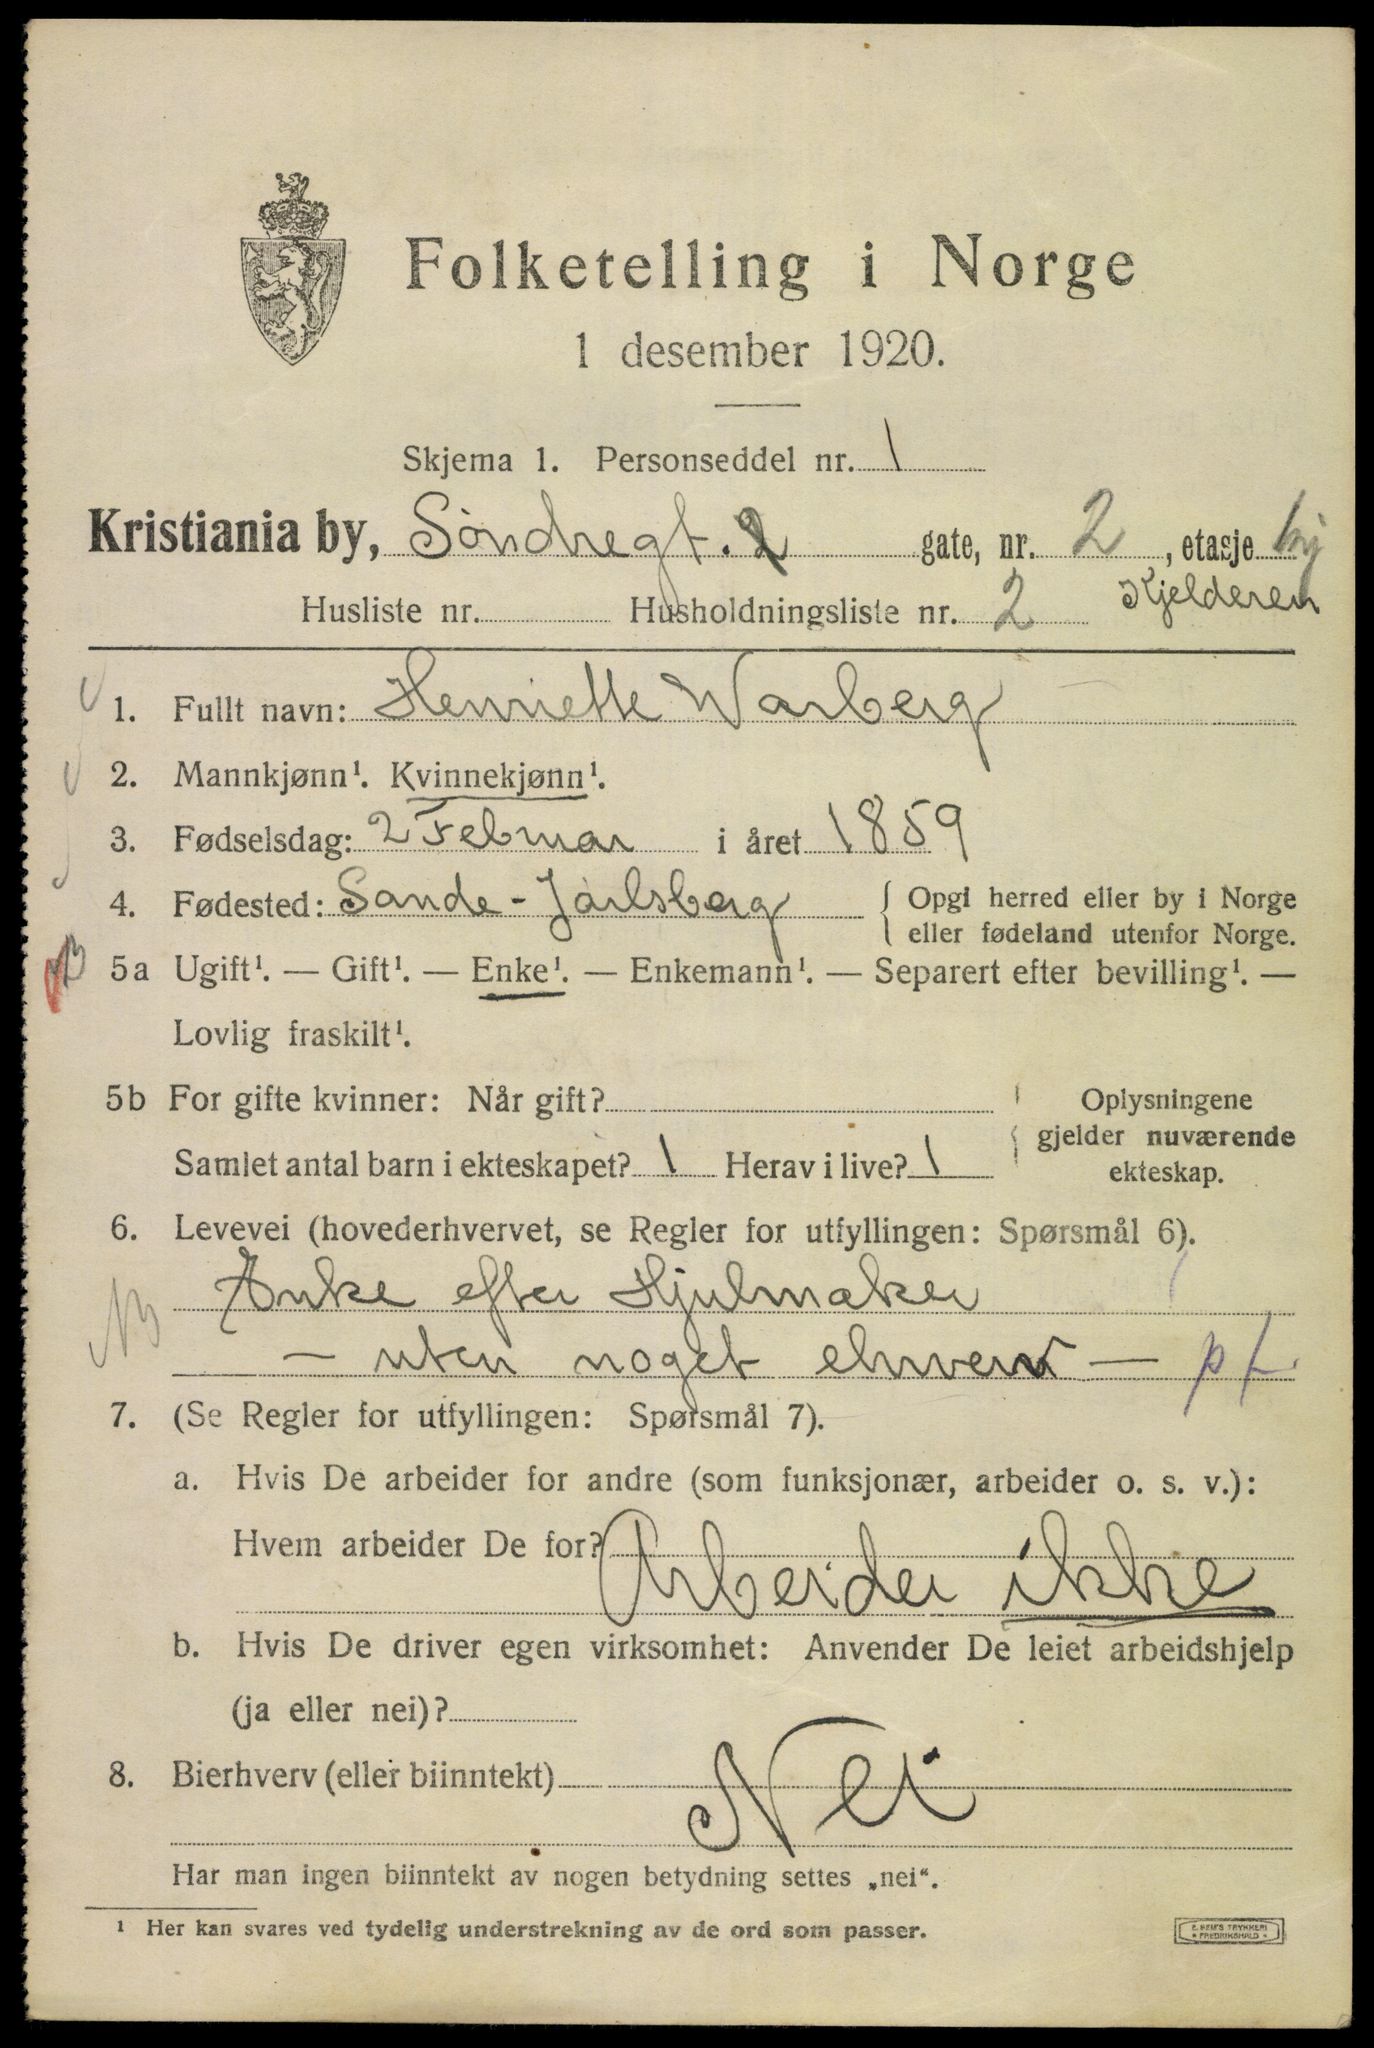 Folketelling i Norge
1 desember 1920.
Skjema 1. Personseddel nr. 1
Kristiania by, Söndregt. 2 gate, nr. 2, etasje
Husliste nr. Husholdningsliste nr. 2 Kjelderen
1. Fullt navn: Henriette Warberg
2. Mannkjønn¹. Kvinnekjønn¹.
3. Fødselsdag: 2 Februar i året 1859
4. Fødested: Sande - Jarlsberg { Opgi herred eller by i Norge
eller fødeland utenfor Norge.
5a Ugift¹. — Gift¹. — Enke¹. — Enkemann¹. — Separert efter bevilling¹. —
Lovlig fraskilt¹.
5b For gifte kvinner: Når gift? Oplysningene
gjelder nuværende
Samlet antal barn i ekteskapet? 1 Herav i live? 1 ekteskap.
6. Levevei (hovederhvervet, se Regler for utfyllingen: Spørsmål 6).
Enke efter Hjulmaker
— uten noget ehverv —
7. (Se Regler for utfyllingen: Spørsmål 7).
a. Hvis De arbeider for andre (som funksjonær, arbeider o. s. v.):
Hvem arbeider De for? Arbeider ikke
b. Hvis De driver egen virksomhet: Anvender De leiet arbeidshjelp
(ja eller nei)?
8. Bierhverv (eller biinntekt) Nei
Har man ingen biinntekt av nogen betydning settes „nei“.
¹ Her kan svares ved tydelig understrekning av de ord som passer.
E. SEM'S TRYKKERI
* FREDRIKSHALD *